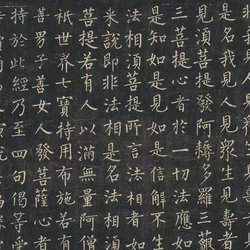 是名我見人見衆生見壽
見須菩提發阿耨多羅三藐
三菩提心者於一切法應如
是知如是見如是信解不生
法相須菩提所言法相者如
來說即非法相是名法相須
菩提若有人以滿無量阿僧
祇世界七寶持用布施若有
善男子善女人發菩薩心者
持於此經乃至四句偈等受